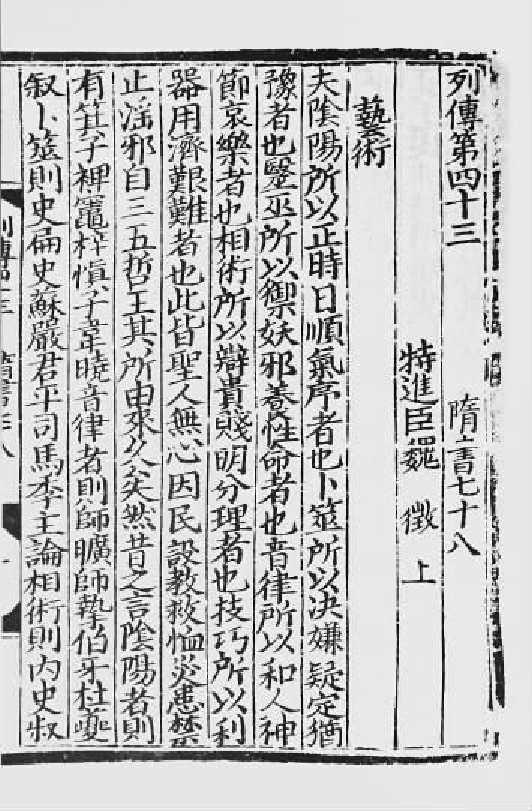 列傳第四十三　隋書七十八
特進臣魏徵上
藝術
夫陰陽所以正時日順氣序者也卜筮所以決嫌疑定猶
豫者也毉巫所以禦妖邪養性命者也音律所以和人神
節哀樂者也相術所以辯貴賤明分理者也技巧所以利
器用濟艱難者也此皆聖人無心因民設教救恤災患禁
止淫邪自三五哲王其所由來久矣然昔之言陰陽者則
有箕子裨竈梓慎子韋曉音律者則師曠師摯伯牙杜夔
叙卜筮則史扁史蘇嚴君平司馬季主論相術則内史叔